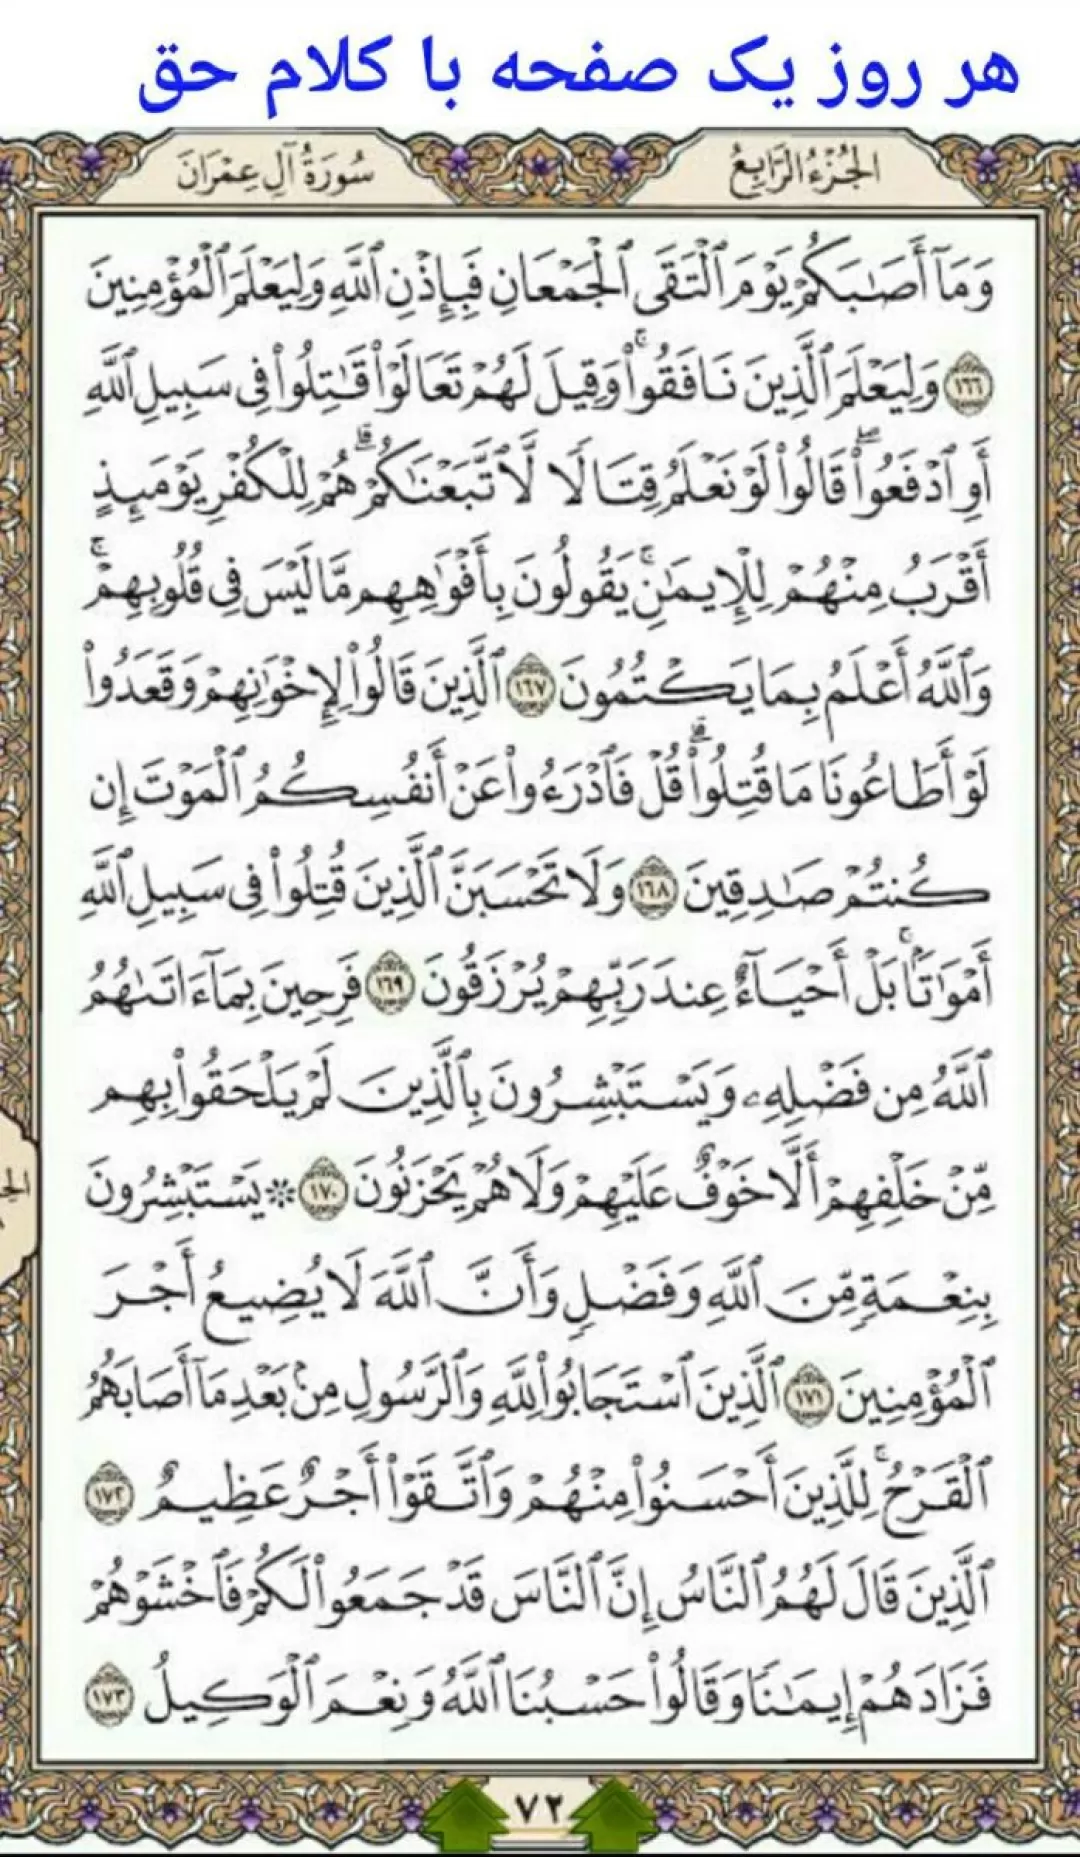 هر روز یک صفحه با کلام حق
الجُزْءُ الرَّابِعُ
سُورَةُ آلِ عِمْرَانَ
وَمَآ أَصَٰبَكُمْ يَوْمَ ٱلْتَقَى ٱلْجَمْعَانِ فَبِإِذْنِ ٱللَّهِ وَلِيَعْلَمَ ٱلْمُؤْمِنِينَ
١٦٦ وَلِيَعْلَمَ ٱلَّذِينَ نَافَقُوا۟ ۚ وَقِيلَ لَهُمْ تَعَالَوْا۟ قَٰتِلُوا۟ فِى سَبِيلِ ٱللَّهِ
أَوِ ٱدْفَعُوا۟ ۖ قَالُوا۟ لَوْ نَعْلَمُ قِتَالًا لَّٱتَّبَعْنَٰكُمْ ۗ هُمْ لِلْكُفْرِ يَوْمَئِذٍ
أَقْرَبُ مِنْهُمْ لِلْإِيمَٰنِ ۚ يَقُولُونَ بِأَفْوَٰهِهِم مَّا لَيْسَ فِى قُلُوبِهِمْ ۚ
وَٱللَّهُ أَعْلَمُ بِمَا يَكْتُمُونَ ١٦٧ ٱلَّذِينَ قَالُوا۟ لِإِخْوَٰنِهِمْ وَقَعَدُوا۟
لَوْ أَطَاعُونَا مَا قُتِلُوا۟ ۗ قُلْ فَٱدْرَءُوا۟ عَنْ أَنفُسِكُمُ ٱلْمَوْتَ إِن
كُنتُمْ صَٰدِقِينَ ١٦٨ وَلَا تَحْسَبَنَّ ٱلَّذِينَ قُتِلُوا۟ فِى سَبِيلِ ٱللَّهِ
أَمْوَٰتًۢا ۚ بَلْ أَحْيَآءٌ عِندَ رَبِّهِمْ يُرْزَقُونَ ١٦٩ فَرِحِينَ بِمَآ ءَاتَىٰهُمُ
ٱللَّهُ مِن فَضْلِهِۦ وَيَسْتَبْشِرُونَ بِٱلَّذِينَ لَمْ يَلْحَقُوا۟ بِهِم
مِّنْ خَلْفِهِمْ أَلَّا خَوْفٌ عَلَيْهِمْ وَلَا هُمْ يَحْزَنُونَ ١٧٠ ۞ يَسْتَبْشِرُونَ
بِنِعْمَةٍ مِّنَ ٱللَّهِ وَفَضْلٍ وَأَنَّ ٱللَّهَ لَا يُضِيعُ أَجْرَ
ٱلْمُؤْمِنِينَ ١٧١ ٱلَّذِينَ ٱسْتَجَابُوا۟ لِلَّهِ وَٱلرَّسُولِ مِنۢ بَعْدِ مَآ أَصَابَهُمُ
ٱلْقَرْحُ ۚ لِلَّذِينَ أَحْسَنُوا۟ مِنْهُمْ وَٱتَّقَوْا۟ أَجْرٌ عَظِيمٌ ١٧٢
ٱلَّذِينَ قَالَ لَهُمُ ٱلنَّاسُ إِنَّ ٱلنَّاسَ قَدْ جَمَعُوا۟ لَكُمْ فَٱخْشَوْهُمْ
فَزَادَهُمْ إِيمَٰنًا وَقَالُوا۟ حَسْبُنَا ٱللَّهُ وَنِعْمَ ٱلْوَكِيلُ ١٧٣
٧٢